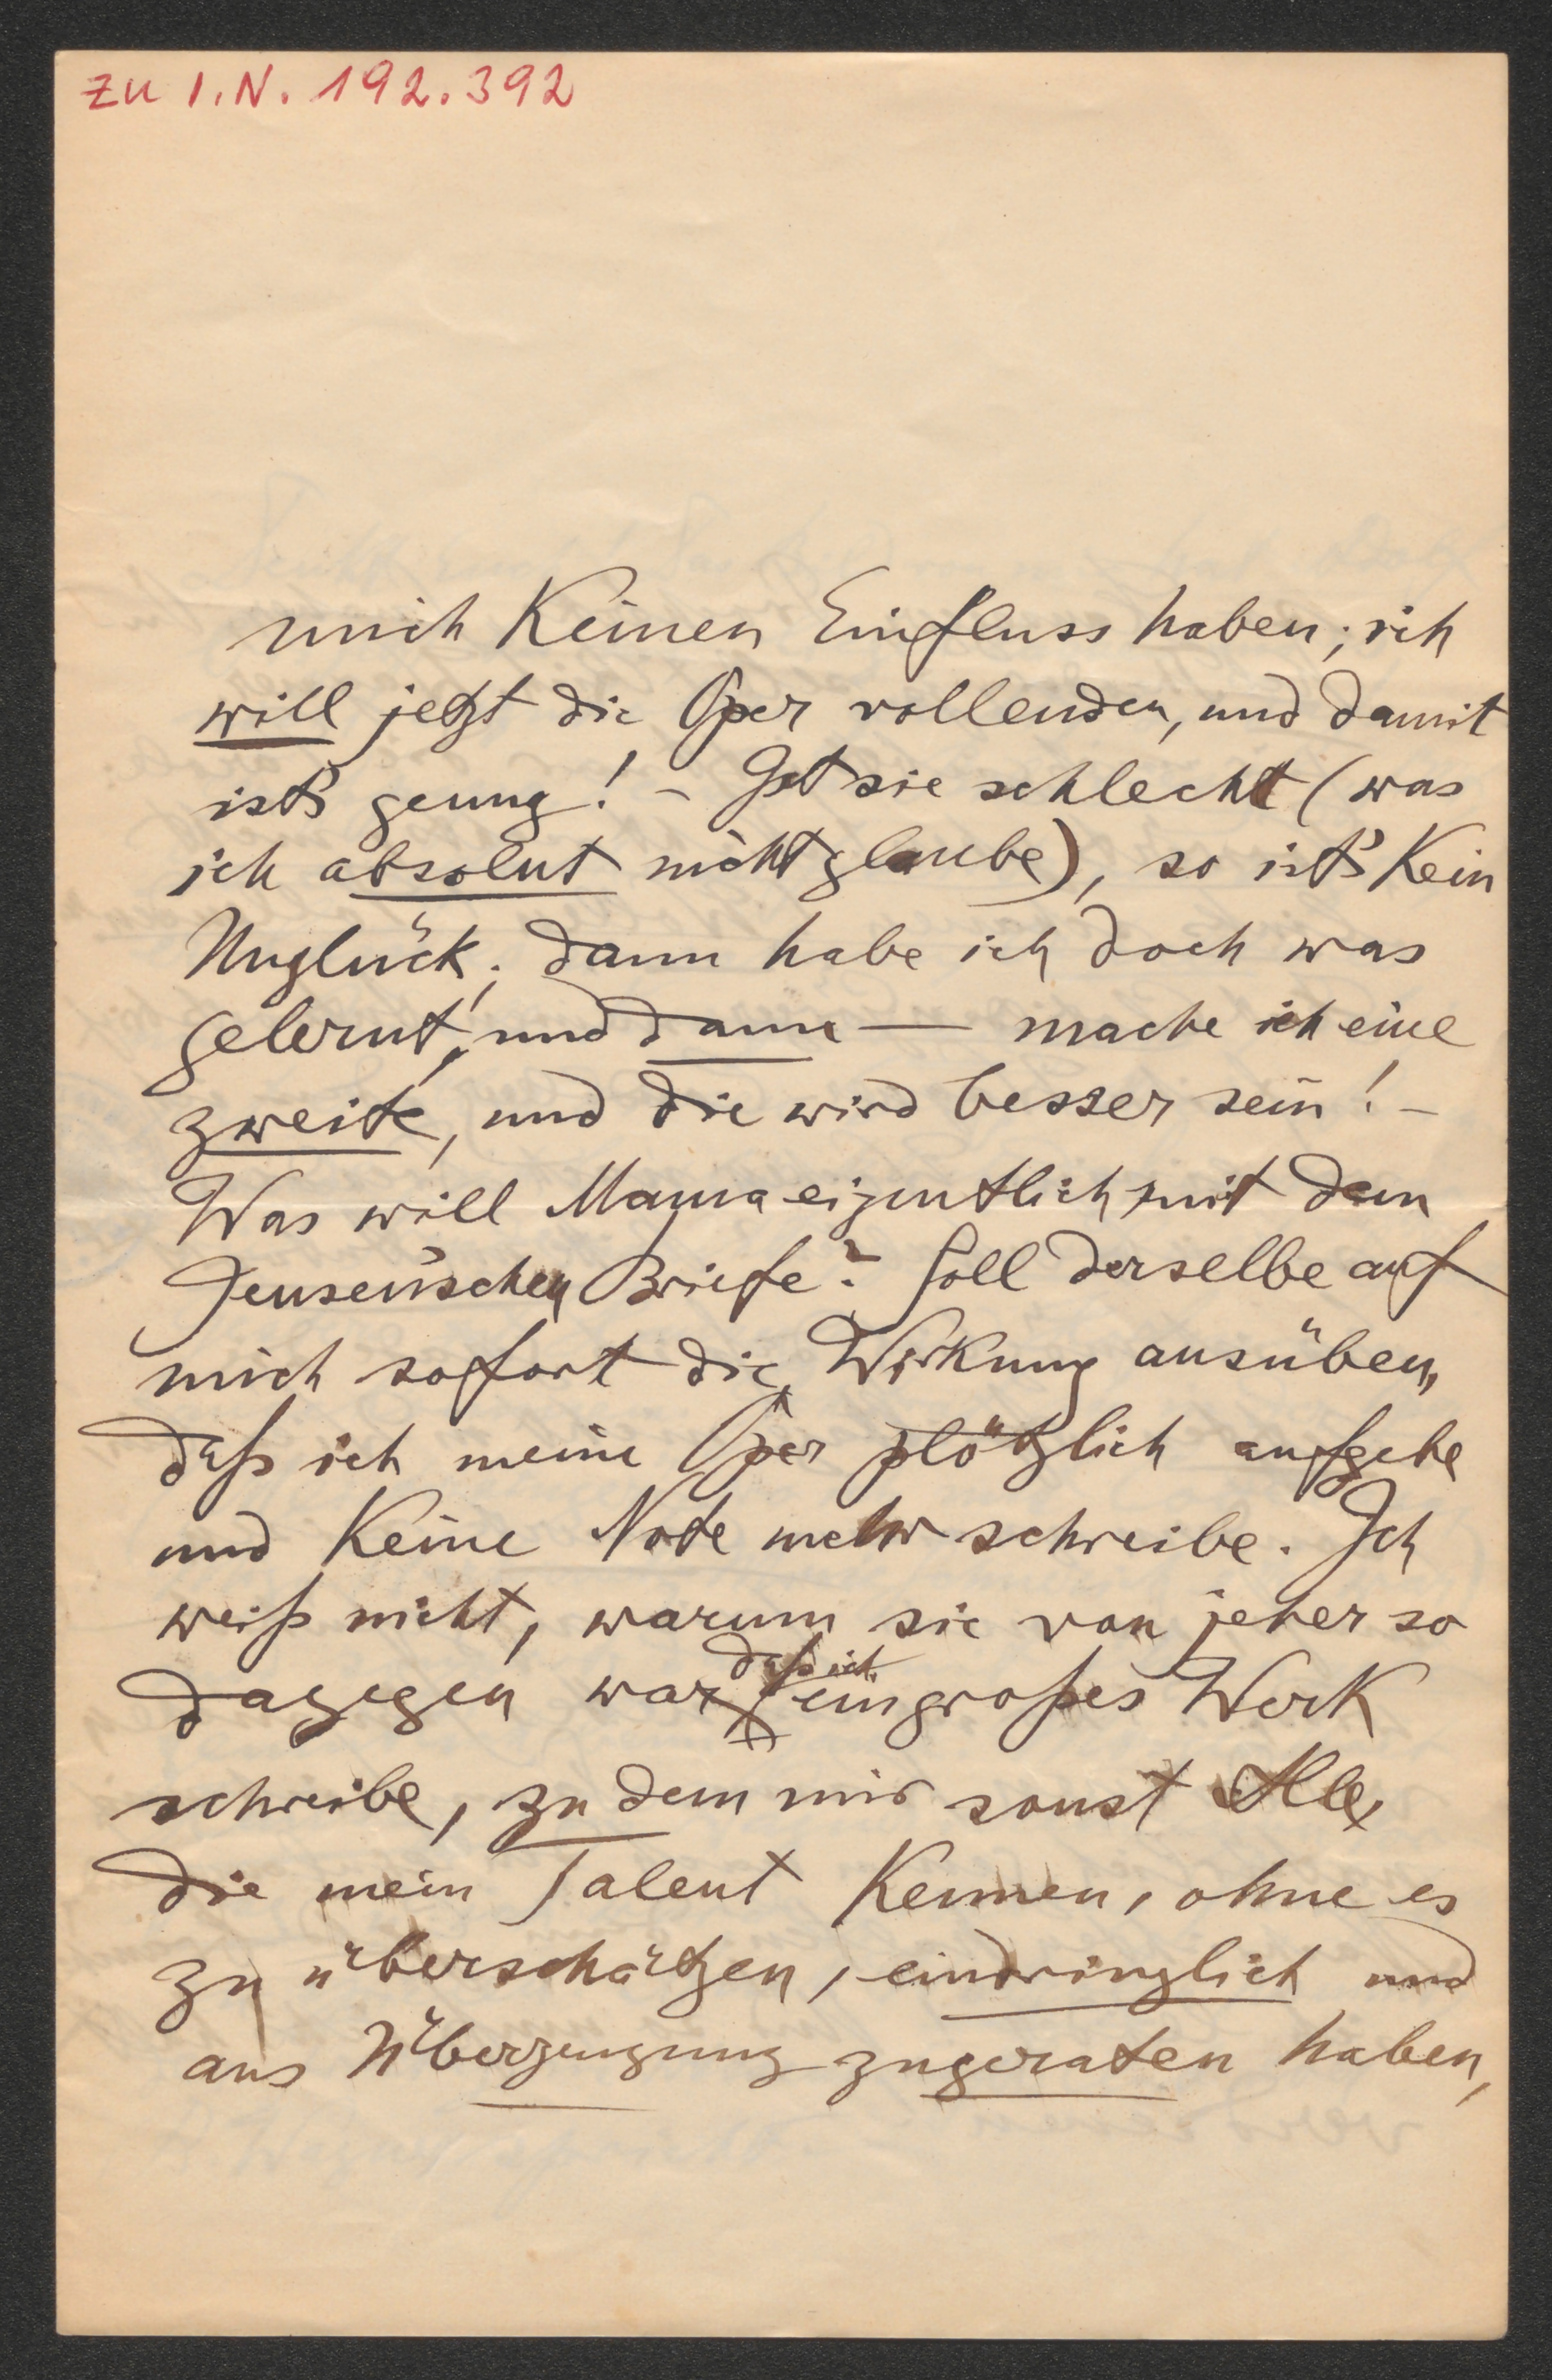 zu I.N. 192.392
mich Keinen Einfluss haben; ich
will jetzt die Oper vollenden, und damit
ist's genug! – Ist sie schlecht (was
ich absolut nicht glaube), so ist's Kein
Unglück; dann habe ich doch was
gelernt, und dann — mache ich eine
zweite, und die wird besser sein! –
Was will Mama eigentlich mit dem
Jensen'schen Briefe? Soll derselbe auf
mich sofort die Wirkung ausüben,
daß ich meine Oper plötzlich aufgebe
und Keine Note mehr schreibe. Ich
weiß nicht, warum sie von jeher so
daß ich
dagegen war ein großes Werk
schreibe, zu dem mir sonst Alle,
die mein Talent Kennen, ohne es
zu überschätzen, eindringlich und
aus Überzeugung zugeraten haben,